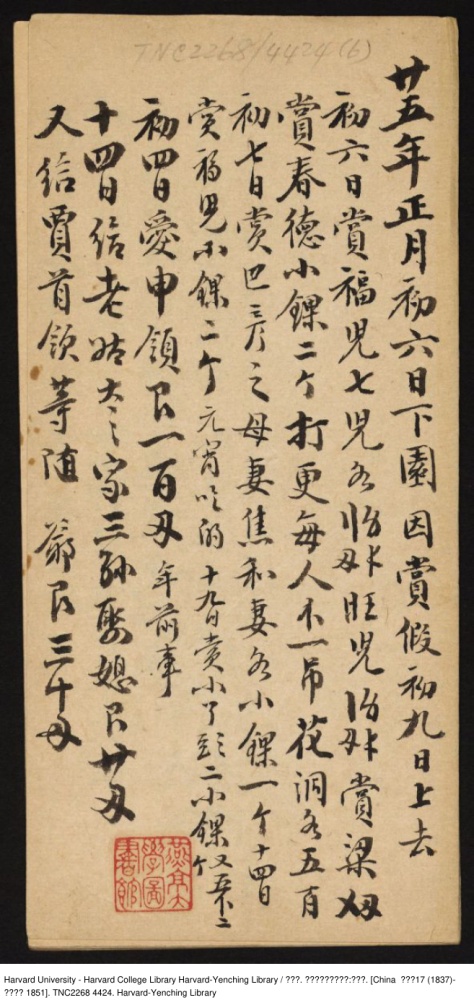 TNC2268/4424(6)
廿五年正月初六日下園因賞假初九日上去
初六日賞福兒七兒各 旺兒 賞梁
賞春德小錁二个打更每人木一吊花洞各五百
初七日賞巴 之母妻焦和妻各小錁一个十四日
賞福兒小錁二个元宵 的十九日賞小丫頭二小錁
初四日愛申領艮一百刄年前事
十四日給老姑太之家三孫娶媳艮廿刄
又給賈首領等隨 艮三十刄
燕京大學圖書館
Harvard University - Harvard College Library Harvard-Yenching Library / ???. ?????????:???. [China ???17 (1837)-
???? 1851]. TNC2268 4424. Harvard-Yenching Library